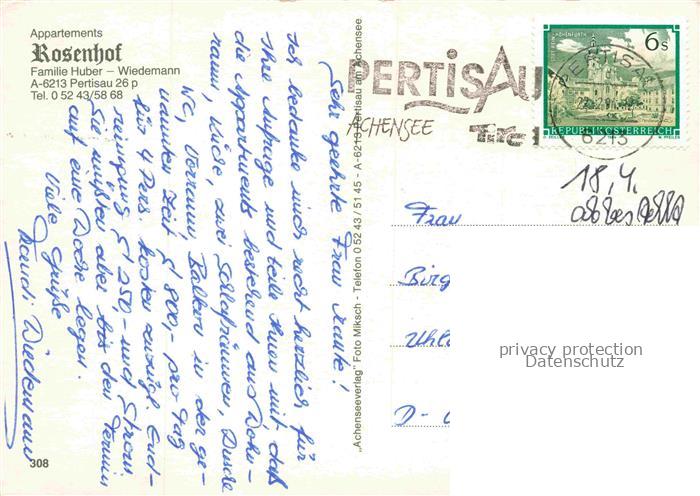 Appartements
Rosenhof
Familie Huber – Wiedemann
A-6213 Pertisau 26 p
Tel. 0 52 43/58 68
Sehr geehrte Frau
Ich bedanke mich recht herzlich für
Ihre Anfrage und teile Ihnen mit daß
die Appartments bestehend aus Wohn-
raum, Küche, zwei Schlafräumen, Dusche
WC, Vorraum, Balkon in der ge-
nannten Zeit S 800,- pro Tag
für 4 Pers. kosten zuzügl. End-
reinigung S 250,- und Strom
Sie müßten aber bis den Termin
auf eine Woche legen.
Viele Grüße
Wiedemann
308
„Achenseeverlag" Foto Miksch - Telefon 0 52 43 / 51 45 - A-6213 Pertisau am Achensee
PERTISAU
ACHENSEE
PERTISAU
6213
6 s
REPUBLIK ÖSTERREICH
18.4.
Frau
Birg
Uhl
D-
privacy protection
Datenschutz